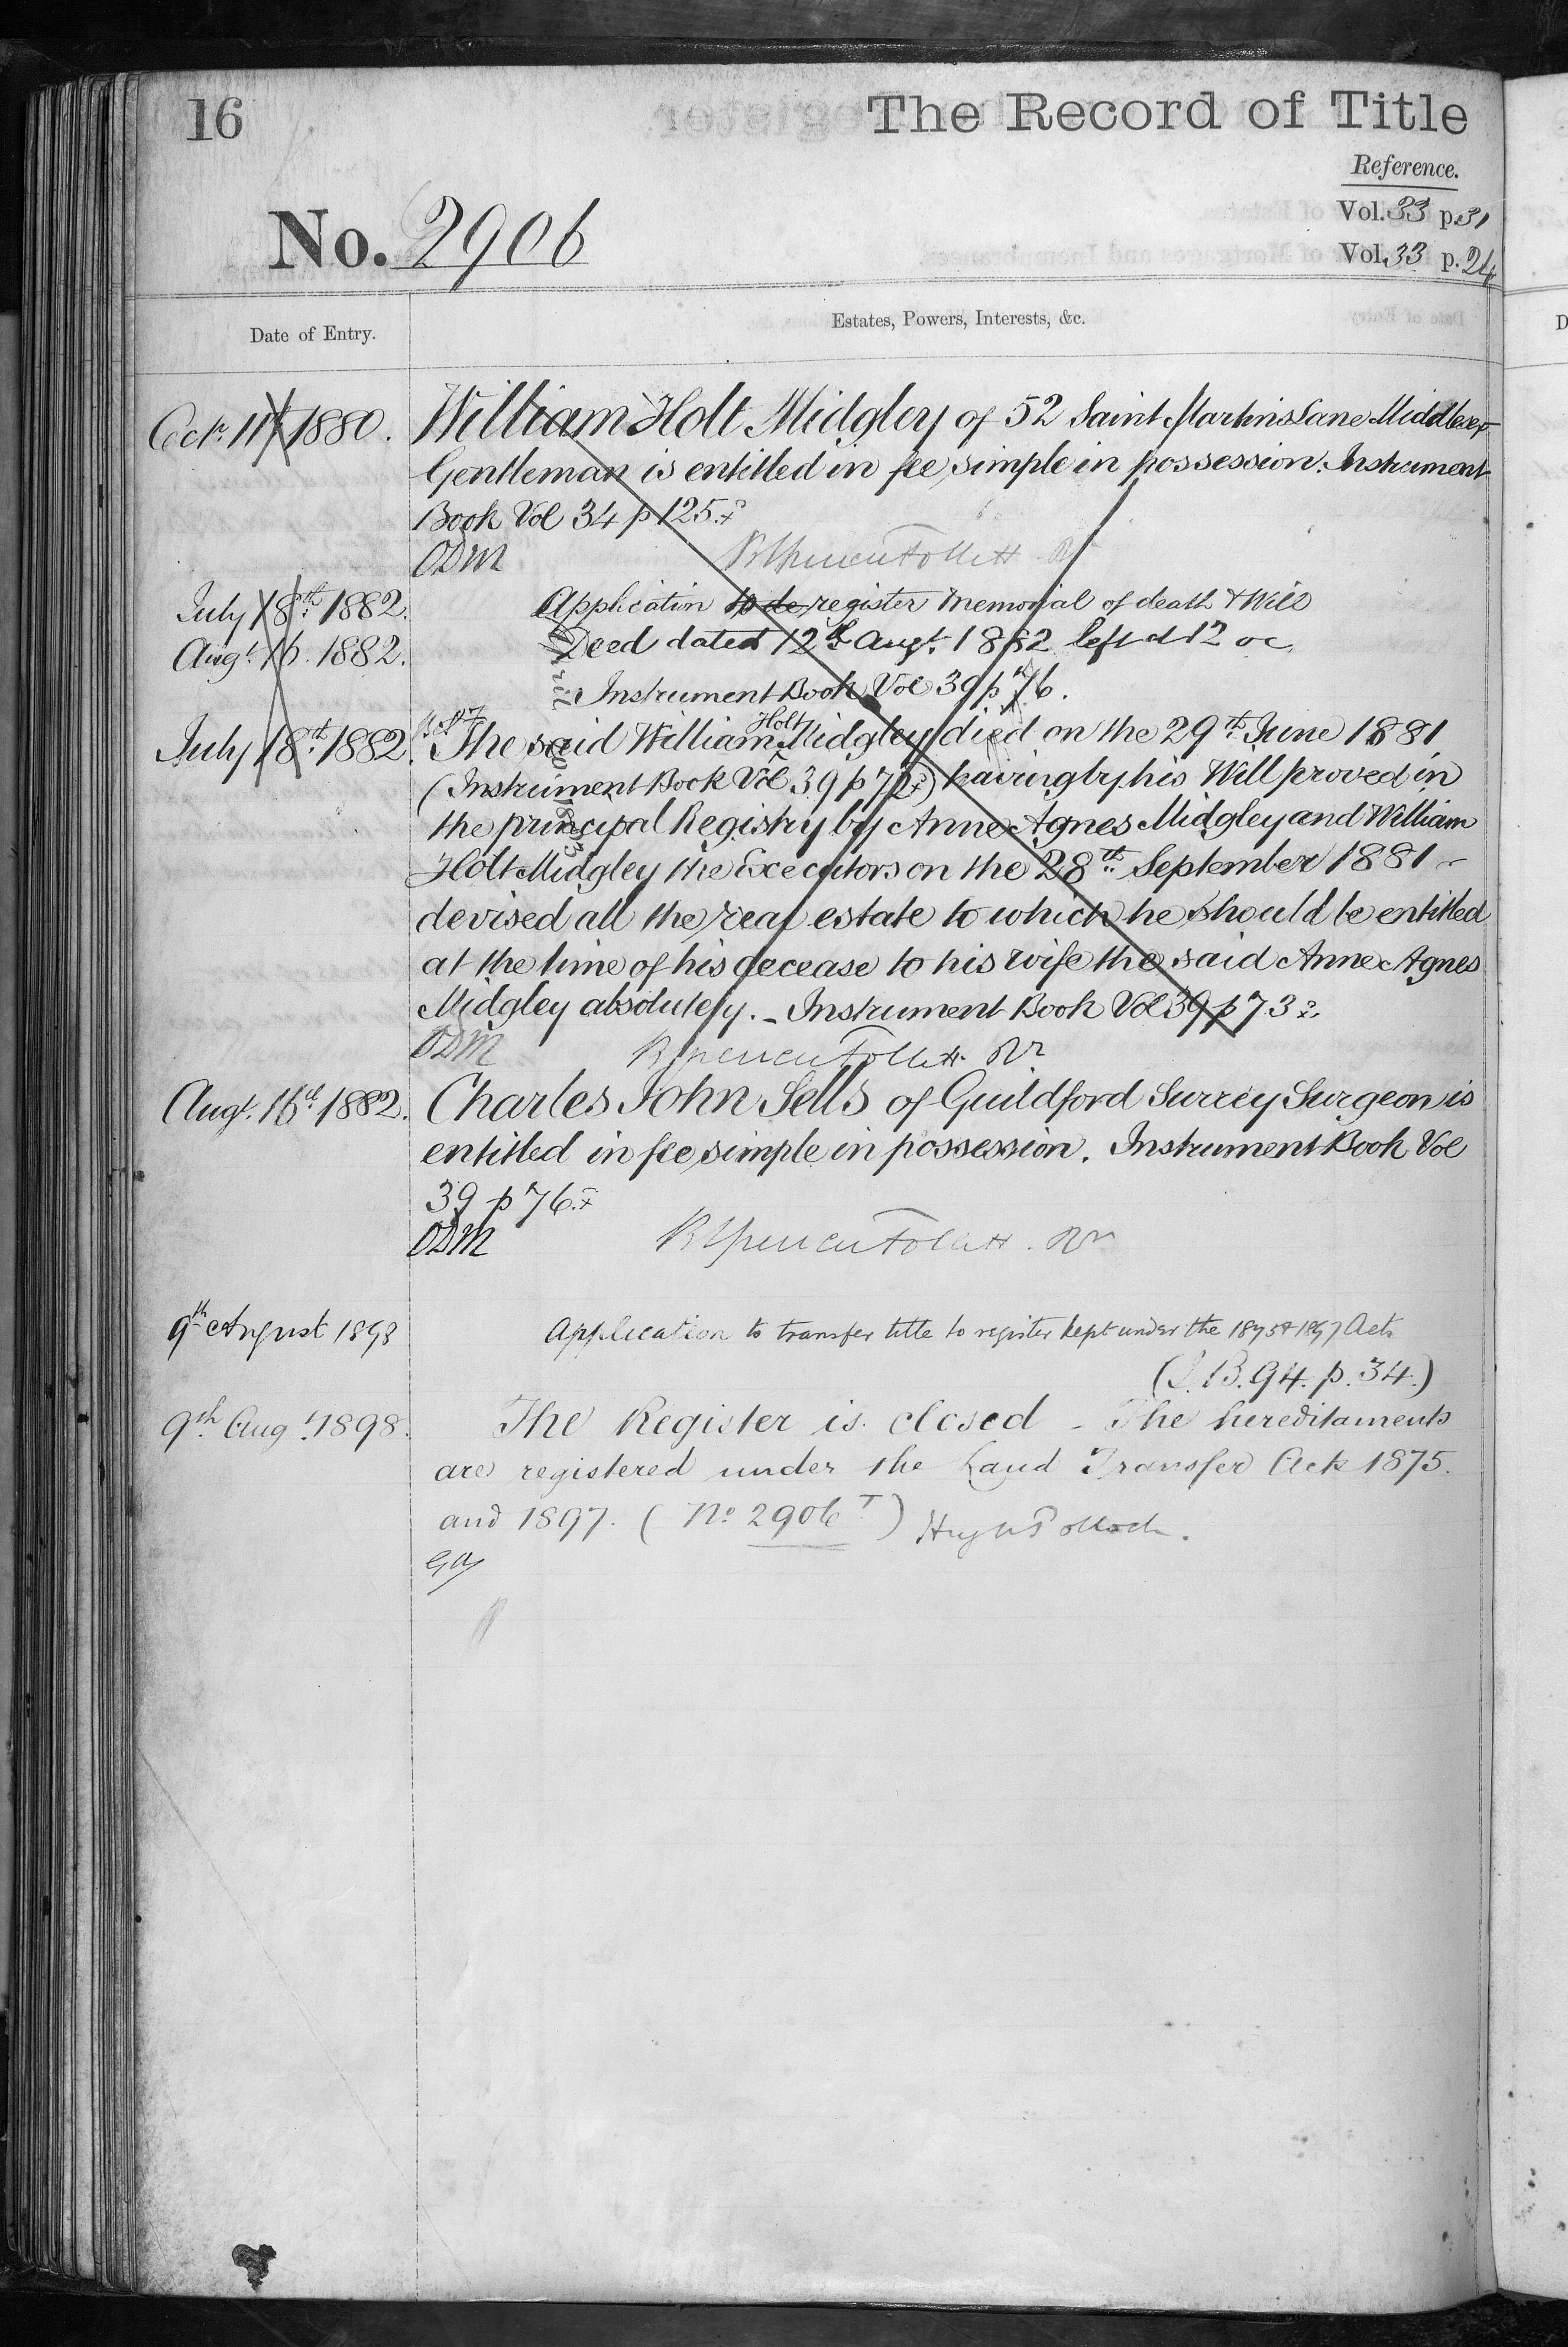 16
The Record of Title
Reference.
Vol. 33 p. 31
No. 2906
Vol. 33 p. 24
Date of Entry.
Estates, Powers, Interests, &c.
Octr. 11th 1880. William Holt Midgley of 52 Saint Martins Lane Middlesex
Gentleman is entitled in fee simple in possession. Instrument
Book Vol 34 p 125.
ODM R Spencer Follett Rr
July 18th 1882. Application to de register memorial of death & Will
Augt. 16. 1882. Deed dated 12th Augt. 1882 left at 12 oc
Instrument Book Vol 39 p 76.
July 18th 1882. The said William Holt Midgley died on the 29th June 1881
(Instrument Book Vol 39 p 72) having by his Will proved in
the principal Registry by Anne Agnes Midgley and William
Holt Midgley the Executors on the 28th September 1881
devised all the real estate to which he should be entitled
at the time of his decease to his wife the said Anne Agnes
Midgley absolutely. - Instrument Book Vol 39 p 73
ODM R Spencer Follett Rr
Augt. 16th 1882. Charles John Sells of Guildford Surrey Surgeon is
entitled in fee simple in possession. Instrument Book Vol
39 p 76.
ODM R Spencer Follett. Rr
9th August 1898 Application to transfer title to register kept under the 1875 & 1897 Acts
(I.B. 94. p. 34.)
9th Augt. 1898. The Register is closed - The hereditaments
are registered under the Land Transfer Acts 1875.
and 1897. (No 2906 T) Hugh Pollock.